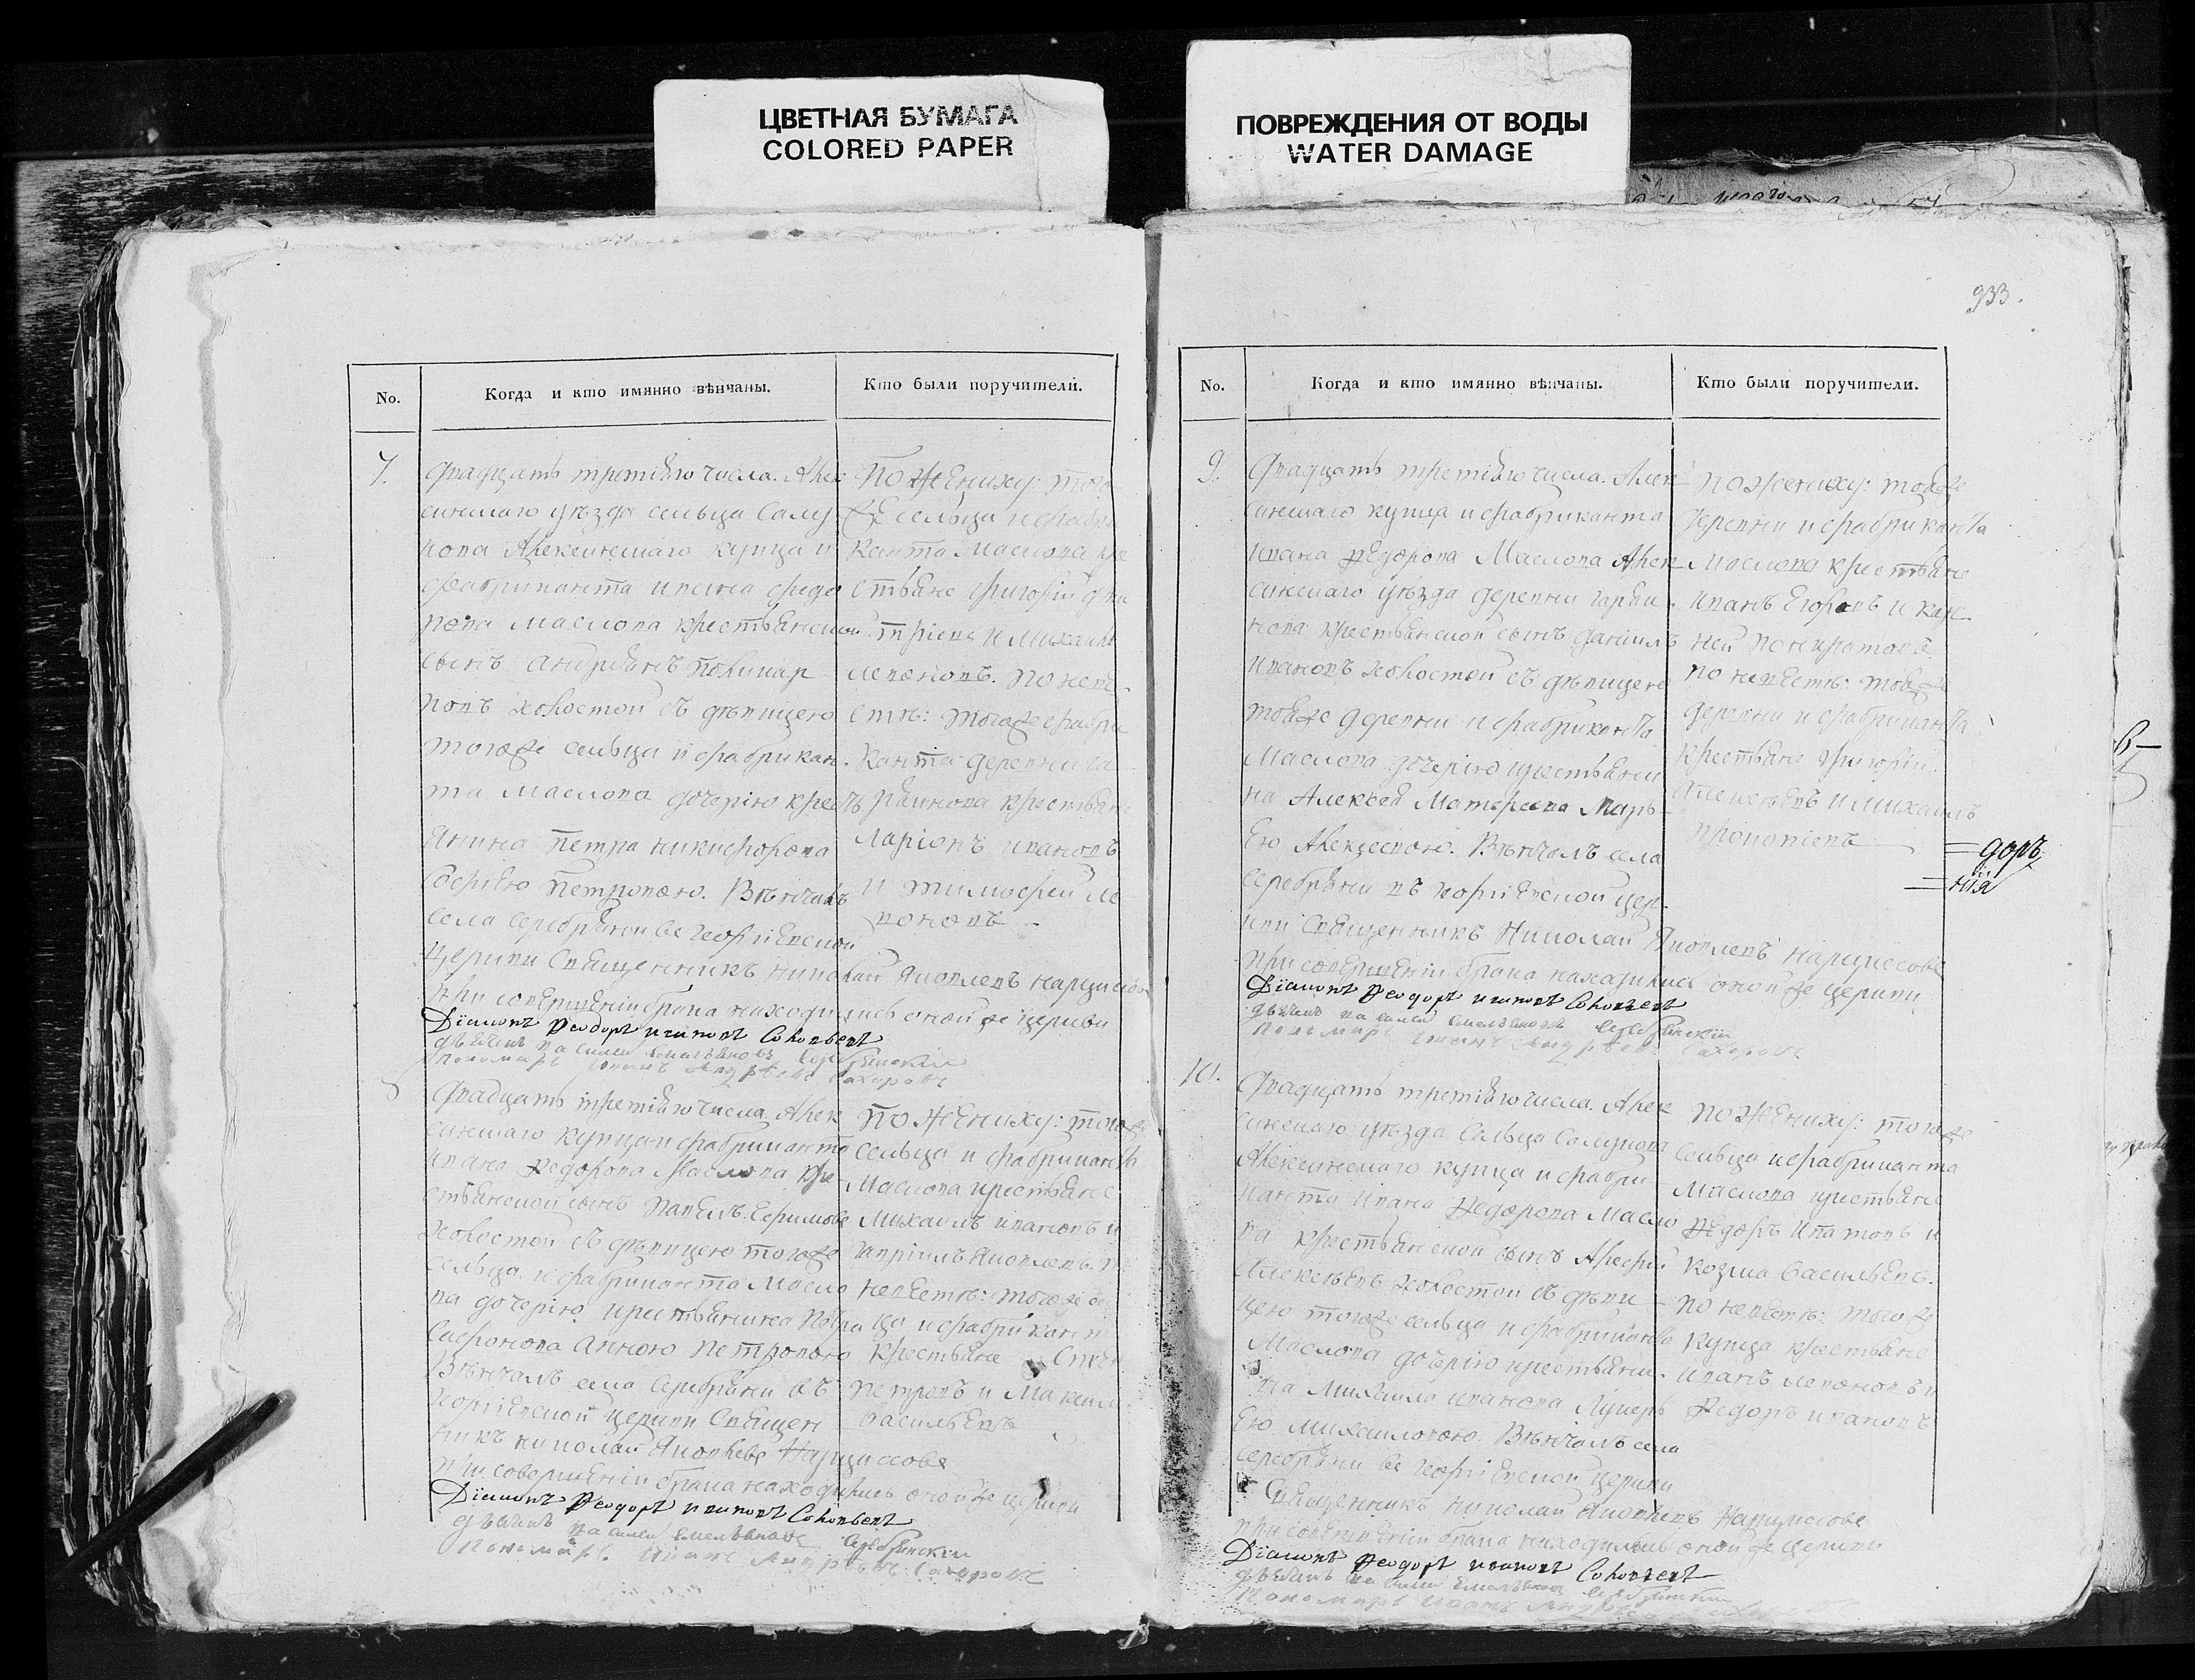 ЦВЕТНАЯ БУМАГА
COLORED PAPER
ПОВРЕЖДЕНИЯ ОТ ВОДЫ
WATER DAMAGE
933.
No.
Когда и кто имянно вѣнчаны.
Кто были поручители.
7.
Двадцать третіяго числа. Алек
синскаго уѣзда сельца Салу
нова Алексинскаго купца и
фабриканта Ивана Федо
рова Маслова крестьянской
сынъ
холостой съ дѣвицею
тогоже сельца и фабрикан
та Маслова дочерію крест
янина Петра Никифорова
Софіею Петровою. Вѣнчалъ
села Серебряни въ Георгіевской
церкви Священникъ Николай Яковлевъ Нарцисовъ
При совершеніи брака находились оной же церкви
Діаконъ Феодоръ Ивановъ Соловьевъ
дьячикъ Василей Емельяновъ Серебрянскій
Пономарь Иванъ Андрѣевъ Сахаровъ
По Жениху: того
же сельца и фабри
канта Маслова кре
стьяне Григорій Дми
тріевъ и Михаилъ
Леоновъ. По невѣ
стѣ: тогоже фабри
канта деревни Га
крестьяне
Ларіонъ Ивановъ
и Тимофей Ле
оновъ
8
Двадцать третіяго числа. Алек
синскаго купца и фабриканта
Ивана Федорова Маслова кре
стьянской сынъ Павелъ Ефимовъ
холостой съ дѣвицею тогоже
сельца и фабриканта Масло
ва дочерію крестьянина Петра
Сафонова Анною Петровою
Вѣнчалъ села Серебряни въ
Георгіевской церкви Священ
никъ Николай Яковлевъ Нарцисовъ
При совершеніи брака находились оной же церкви
Діаконъ Феодоръ Ивановъ Соловьевъ
дьячикъ Василей Емельяновъ Серебрянскій
Пономарь Иванъ Андрѣевъ Сахаровъ
По Жениху: тогоже
сельца и фабриканта
Маслова крестьяне
Михаилъ Ивановъ и
Гавріилъ Яковлевъ. По
невѣстѣ: тогоже се
ца и фабрикант
крестьяне
Петровъ и Максимъ
Васильевъ
No.
Когда и кто имянно вѣнчаны.
Кто были поручители.
9.
Двадцать третіяго числа. Алек
синскаго купца и фабриканта
Ивана Федорова Маслова Алек
синскаго уѣзда деревни
нова крестьянской сынъ Даніилъ
Ивановъ холостой съ дѣвицею
тояже деревни и фабриканта
Маслова дочерію крестьяни
на Алексея Матфеева Марь
ею Алексеевою. Вѣнчалъ села
Серебряни въ Георгіевской цер
кви Священникъ Николай Яковлевъ Нарцисовъ
При совершеніи брака находились оной же церкви
Діаконъ Феодоръ Ивановъ Соловьевъ
дьячикъ Василей Емельяновъ Серебрянскій
Пономарь Иванъ Андрѣевъ Сахаровъ
По жениху: тояже
деревни и фабриканта
Маслова крестьяне
Иванъ Егоровъ и Кор
ней Понкратовъ
По невѣстѣ: тояже
деревни и фабриканта
крестьяне Григорій
Алексѣевъ и Михаилъ
Прокопіевъ
=доръ
=нія
10.
Двадцать третіяго числа. Алек
синскаго уѣзда Сельца Салунова
Алексинскаго купца и фабри
канта Ивана Федорова Масло
ва крестьянской сынъ Алексей
Алексѣевъ холостой съ дѣви
цею тогоже сельца и фабриканта
Маслова дочерію крестьяни
на Михаила Иванова Лукерь
ею Михаиловою. Вѣнчалъ села
Серебряни въ Георгіевской церкви
Священникъ Николай Яковлевъ Нарцисовъ
При совершеніи брака находились оной же церкви
Діаконъ Феодоръ Ивановъ Соловьевъ
дьячикъ Василей Емельяновъ Серебрянскій
Пономарь Иванъ
По Жениху: тогоже
Сельца и фабриканта
Маслова крестьяне
Федоръ Ипатовъ и
Козма Васильевъ.
По невѣстѣ: тогоже
купца крестьяне
Иванъ Леоновъ и
Федоръ Ивановъ